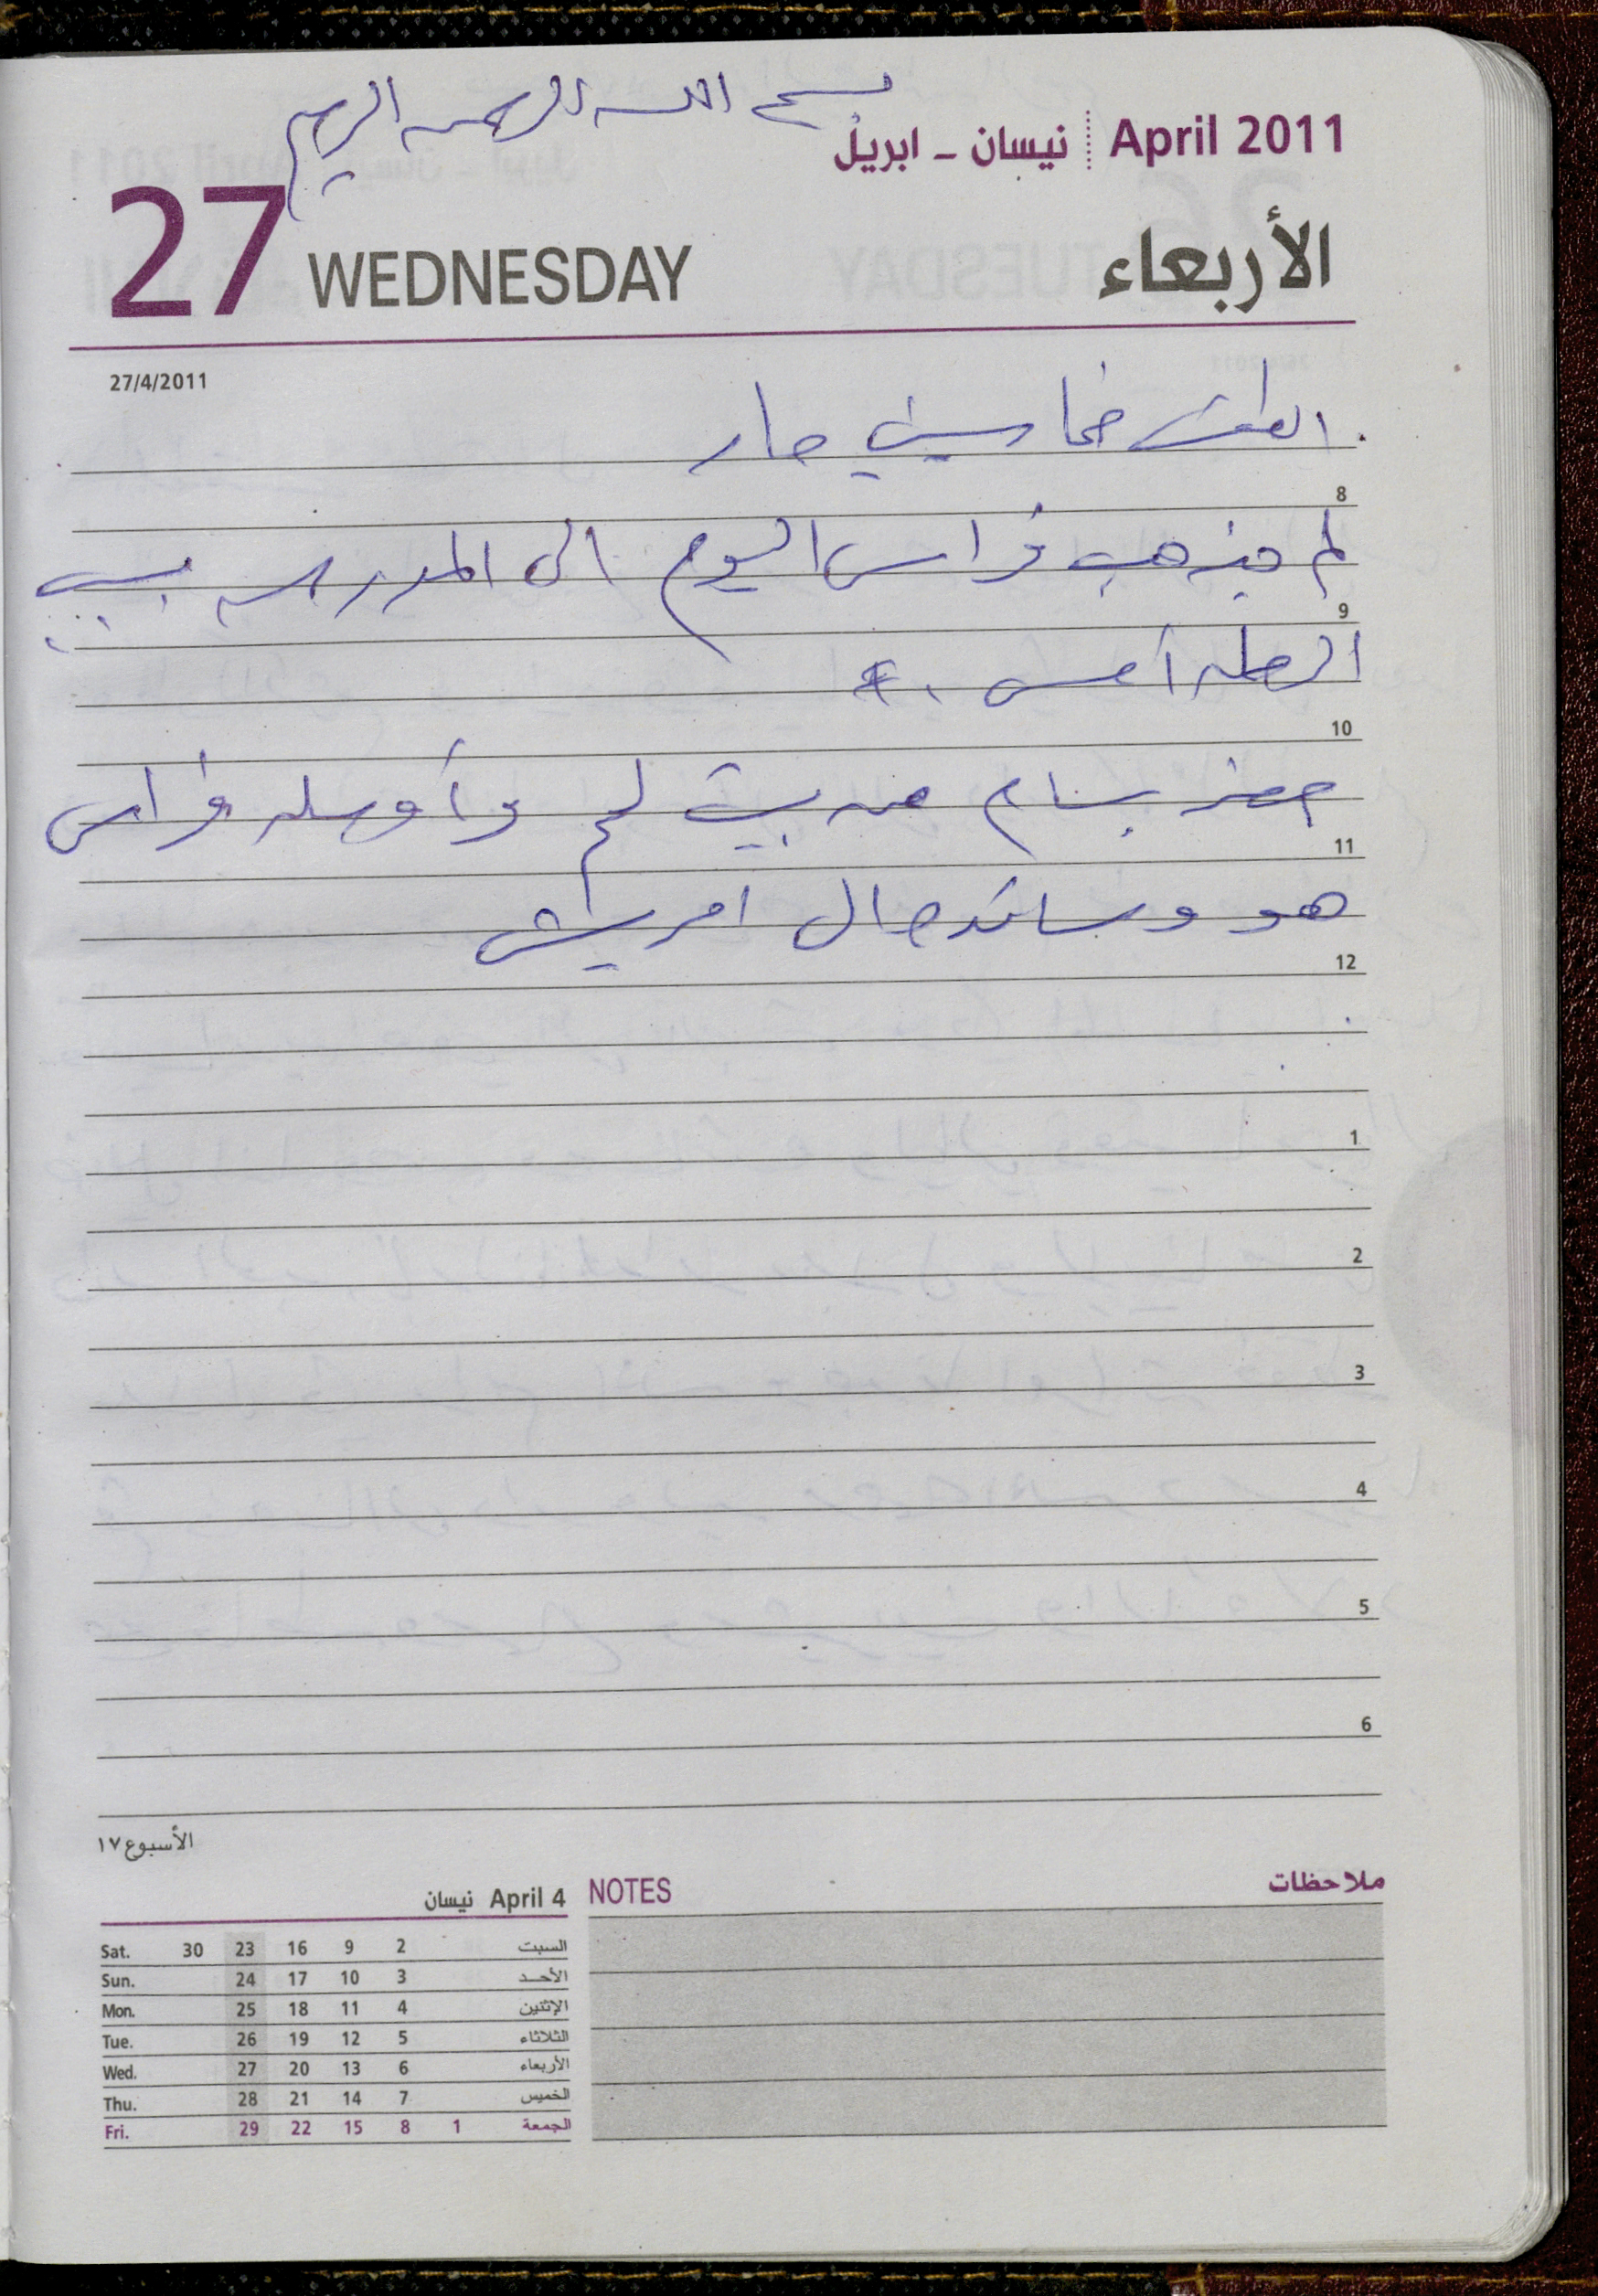 بسم الله الرحمن الرحيم
نيسان - ابريل April 2011
27 WEDNESDAY الأربعاء
27/4/2011
الطقس خماسيني حار
8
لم يذهب فراس اليوم الى المدرسه بسبب
9
الرحله أمس .
10
حضر بسام من بيت لحم وأوصله فراس
11
هو وسائد حال
12
1
2
3
4
5
6
الأسبوع ١٧
NOTES ملاحظات
نيسان April 4
Sat. 30 23 16 9 2 السبت
Sun. 24 17 10 3 الأحد
Mon. 25 18 11 4 الإثنين
Tue. 26 19 12 5 الثلاثاء
Wed. 27 20 13 6 الأربعاء
Thu. 28 21 14 7 الخميس
Fri. 29 22 15 8 1 الجمعة